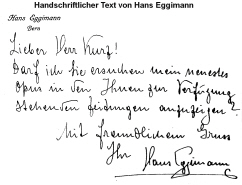 Handschriftlicher Text von Hans Eggimann
Hans Eggimann
Bern
Lieber Herr Kurz!
Darf ich Sie ersuchen mein neuestes
Opus in den Ihnen zur Verfügung
stehenden Zeitungen anzuzeigen?
Mit freundlichem Gruss
Ihr Hans Eggimann